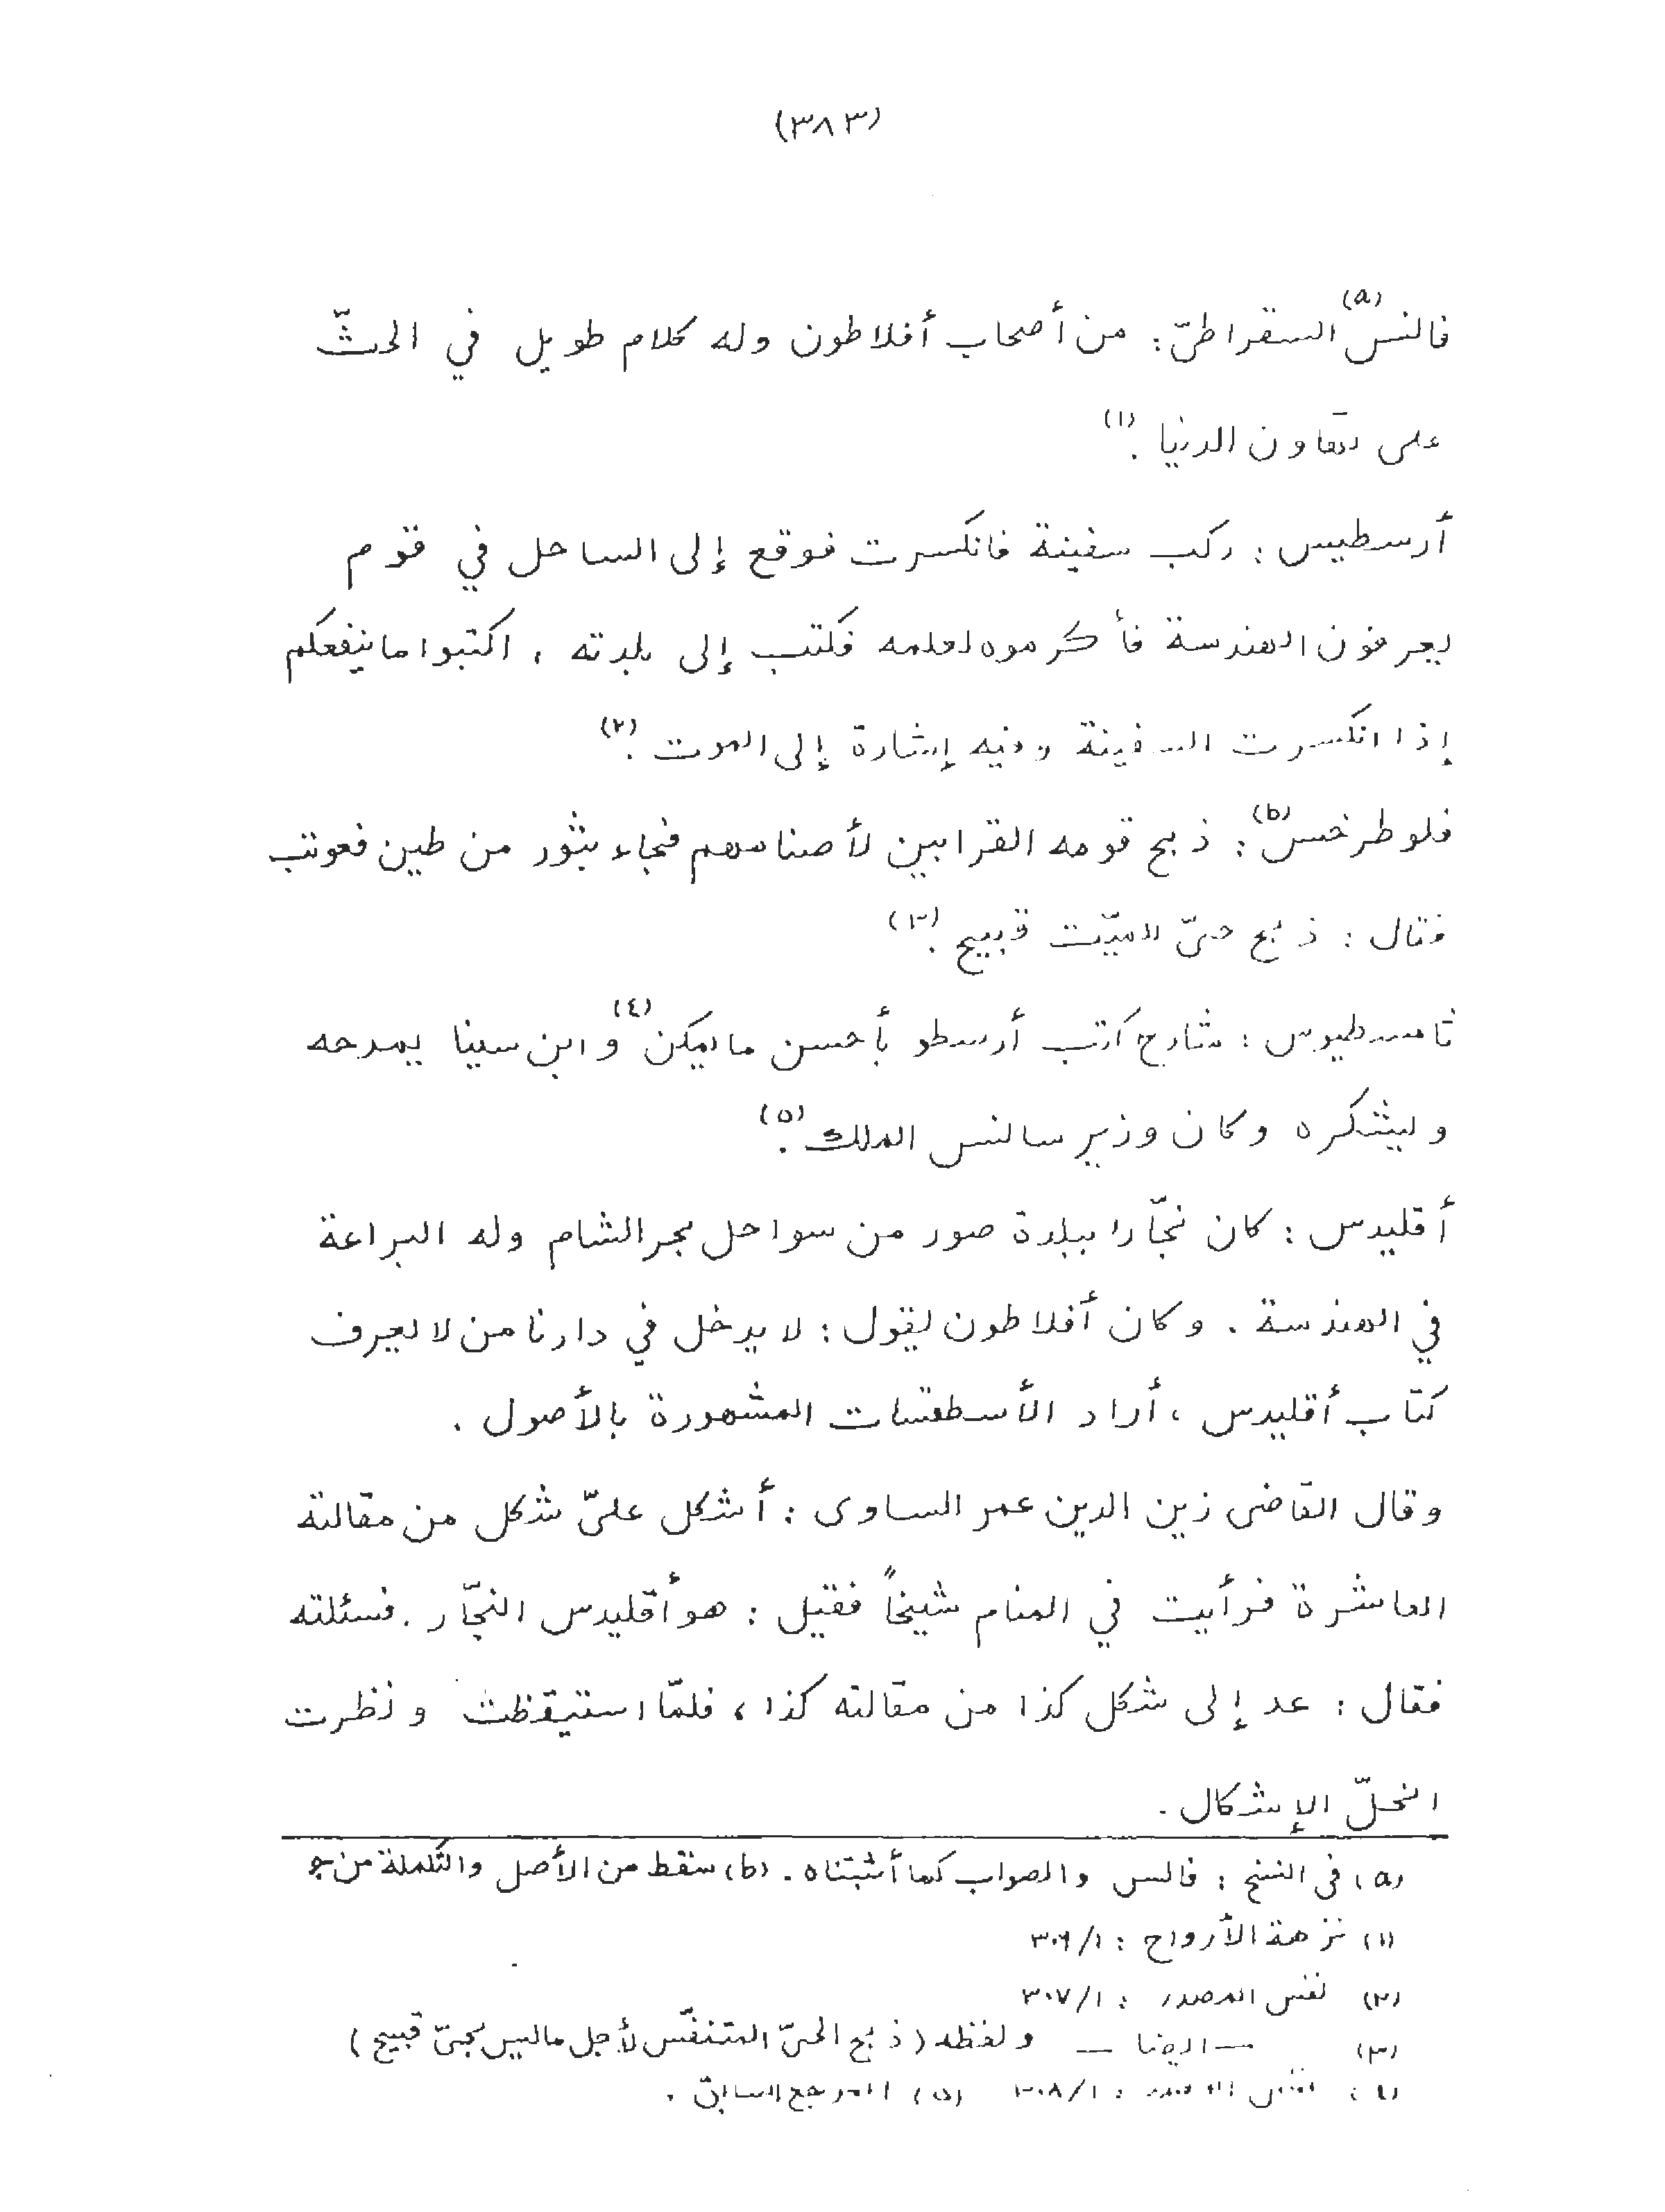 (٣٨٣)
فالنس(a) السقراطيّ : من أصحاب أفلاطون وله كلام طويل في الحثّ
على تهاون الدنيا .(١)
أرسطيس : ركب سفينة فانكسرت فوقع إلى الساحل في قوم
يعرفون الهندسة فأكرموه لعلمه فكتب إلى بلدته ، اكتبوا ما ينفعكم
إذا انكسرت السفينة وفيه إشارة إلى الموت .(٢)
فلوطرخس(b) : ذبح قومه القرابين لأصنامهم فجاء بثور من طين فعوتب
فقال : ذبح حيّ لميّت قبيح .(٣)
ثامسطيوس : شارح كتب أرسطو بأحسن ما يمكن(٤) و ابن سينا يمدحه
ويشكره وكان وزير سالنس الملك .(٥)
أقليدس : كان نجّارا ببلدة صور من سواحل بحر الشام وله البراعة
في الهندسة . وكان أفلاطون يقول : لا يدخل في دارنا من لا يعرف
كتاب أقليدس ، أراد الأسطقسات المشهورة بالأصول .
وقال القاضى زين الدين عمر الساوى : أشكل عليّ شكل من مقالته
العاشرة فرأيت في المنام شيخاً فقيل : هو أقليدس النجّار . فسئلته
فقال : عد إلى شكل كذا من مقالته كذا ، فلمّا استيقظت و نظرت
انحلّ الإشكال .
(a) فى النسخ : فالس والصواب كما أثبتناه . (b) سقط من الأصل والتكملة من ج
(١) نزهة الأرواح : ٣٠٦/١
(٢) نفس المصدر : ٣٠٧/١
(٣) — ايضا — ولفظه ( ذبح الحيّ المتنفّس لأجل ما ليس بحيّ قبيح )
(٤) نفس المصدر : ٣٠٨/١ (٥) المرجع السابق .